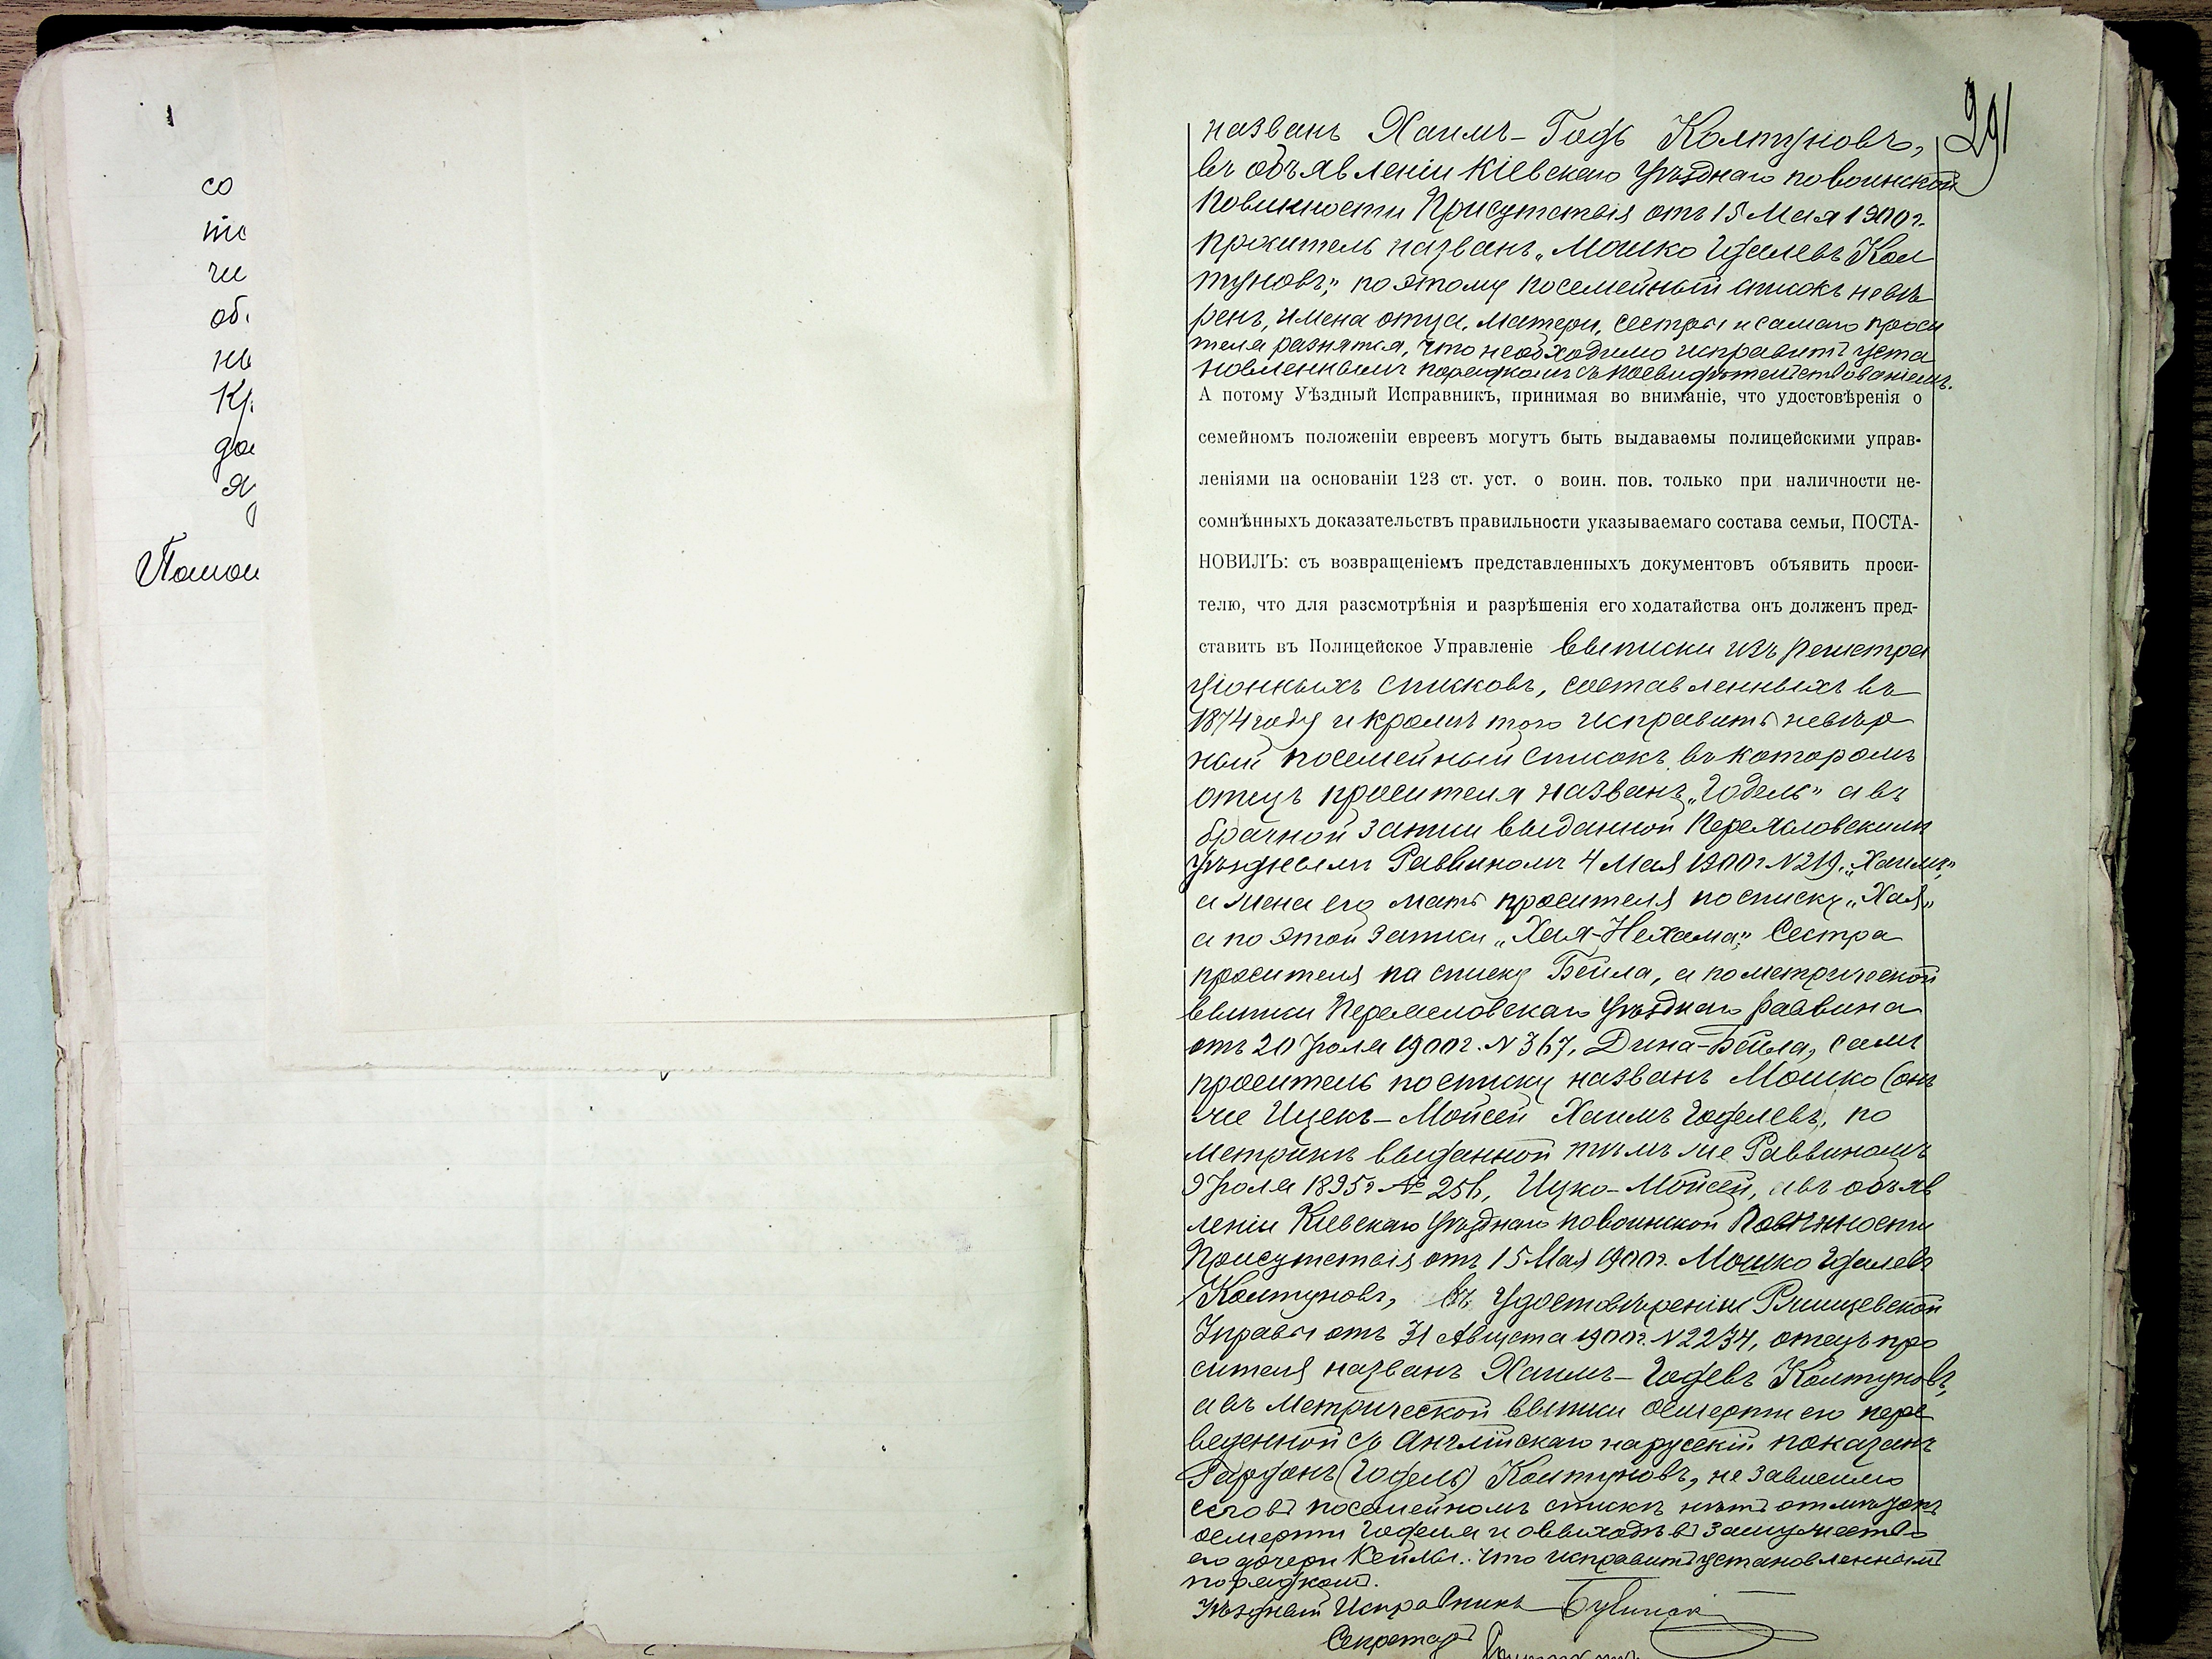 со
те
чи
об
не
Кр
до
яз
Помощ
291
названъ Хаимъ-Годъ Колтуновъ,
въ объявленіи Кіевскаго Уѣзднаго по воинской
Повинности Присутствія отъ 15 Мая 1900 г.
проситель названъ „Мошко Иделевъ Кол
туновъ", по этому посемейный списокъ невѣ
ренъ, имена отца, матери, сестры и самаго проси
теля разнятся, что необходимо исправить уста
новленнымъ порядкомъ съ
А потому Уѣздный Исправникъ, принимая во вниманіе, что удостовѣренія о
семейномъ положеніи евреевъ могутъ быть выдаваемы полицейскими управ-
леніями на основаніи 123 ст. уст. о воин. пов. только при наличности не-
сомнѣнныхъ доказательствъ правильности указываемаго состава семьи, ПОСТА-
НОВИЛЪ: съ возвращеніемъ представленныхъ документовъ объявить проси-
телю, что для разсмотрѣнія и разрѣшенія его ходатайства онъ долженъ пред-
ставить въ Полицейское Управленіе выписки изъ регистра
ціонныхъ списковъ, составленныхъ въ
1874 году и кромѣ того исправить невѣр
ный посемейный списокъ, въ которомъ
отецъ просителя названъ „Годель" а въ
брачной записи выданной Переяславскимъ
Уѣзднымъ Раввиномъ 4 Мая 1900 г N 219. „Хаимъ",
а жена его мать просителя по списку „Хая„
а по этой записи „Хая-Нехама", Сестра
просителя по списку Бейла, а по метрической
выписи Переяславскаго Уѣзднаго раввина
отъ 20 Іюля 1900 г. N 367, Дина-Бейла, самъ
проситель по списку названъ Мошко (онъ
же Ицекъ-Мойсей Хаимъ Годелевъ, по
метрикѣ выданной тѣмъ же Раввиномъ
9 Іюля 1895 г № 256, Ицко-Мойсей, а въ объяв
леніи Кіевскаго Уѣзднаго по воинской Повинности
Присутствія отъ 15 Мая 1900 г. Мошко Иделевъ
Колтуновъ, въ удостовѣреніи Ржищевской
Управы отъ 31 Августа 1900 г. N 2234, отецъ про
сителя названъ Хаимъ-Годевъ Колтуновъ,
а въ Метрической выписи о смерти его пере
веденной съ Англійскаго на русскій показанъ
Гардонъ (Годель) Колтуновъ, не зависимо
сего въ посемейномъ спискѣ нѣтъ отмѣтокъ
о смерти Годеля и о выходѣ въ замужество
его дочери Бейлы. что исправить установленнымъ
порядкомъ.
Уѣздный Исправникъ
Секретарь